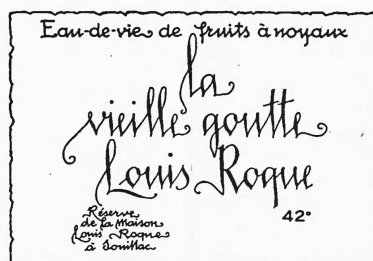 Eau-de-vie de fruits à noyaux
la
vieille goutte
Louis Roque
42°
Réserve
de la Maison
Louis Roque
à Souillac